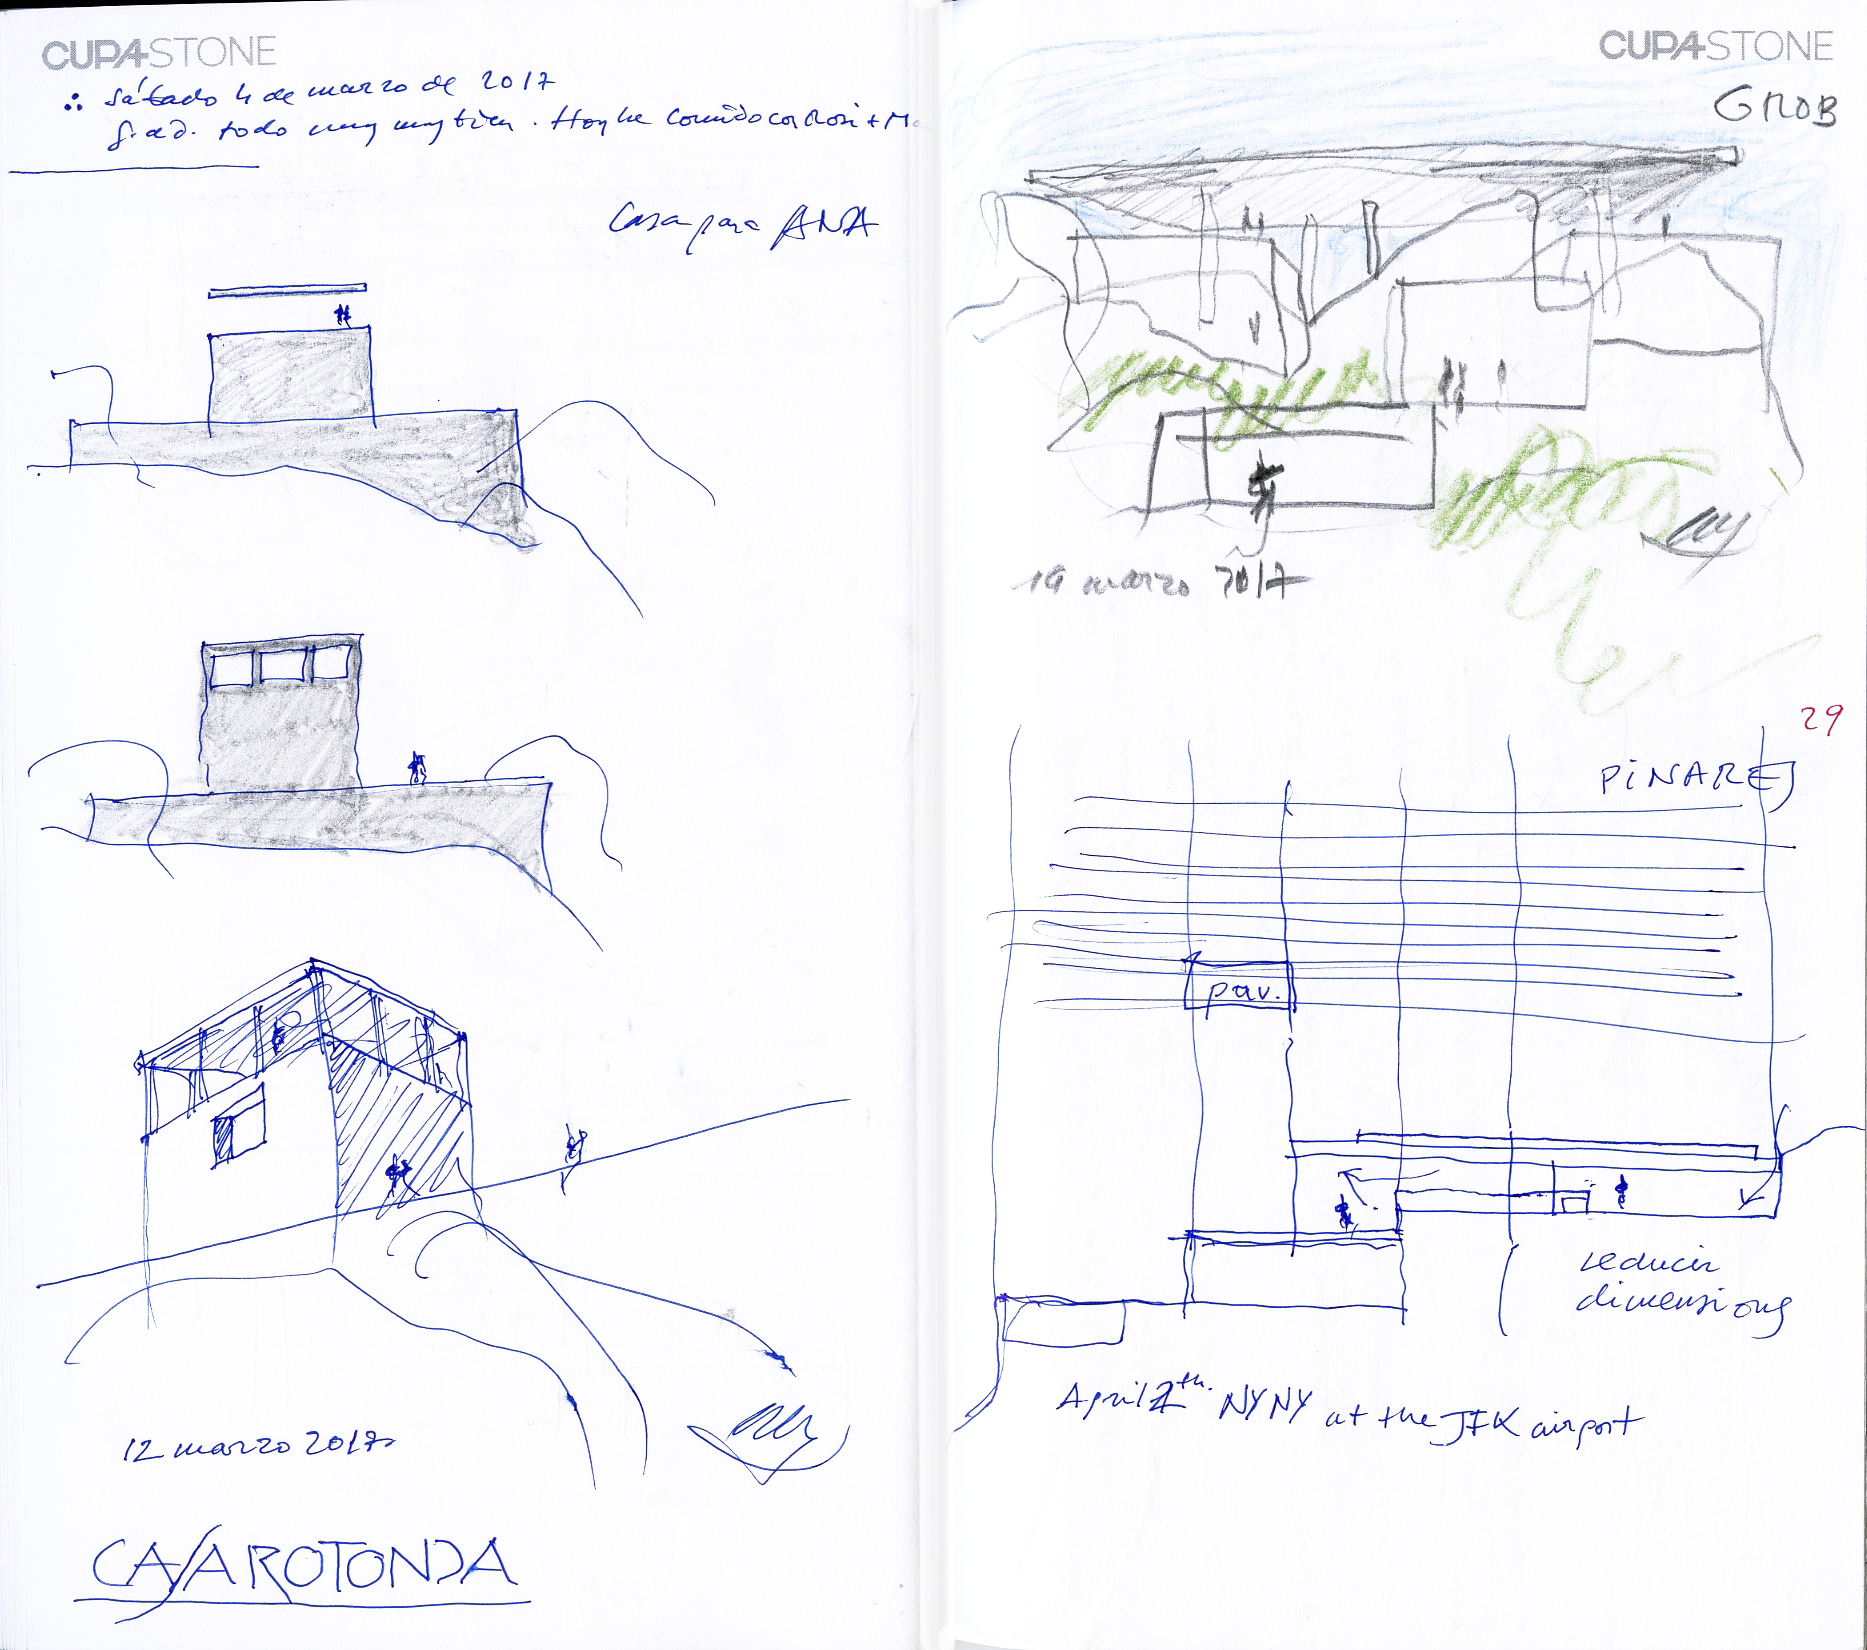 CUPASTONE
∴ Sábado 4 de marzo de 2017
g.a.d. todo muy muy bien. Hoy he comido con Rosi + M
Casa para ANA
12 marzo 2017
CASA ROTONDA
CUPASTONE
GROB
19 marzo 2017
29
PINARES
pav.
reducir
dimensions
April 2th. NYNY at the JFK airport